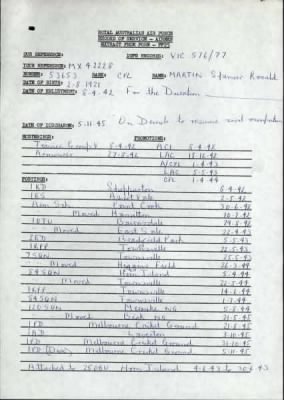 ROYAL AUSTRALIAN AIR FORCE
RECORD OF SERVICE - AIRMEN
EXTRACT FROM FORM - PP31
OUR REFERENCE: DVPS ENDORSED: VIC 576/77
YOUR REFERENCE: MX 42228
NUMBER: 53653 RANK: CPL NAME: MARTIN Spencer Ronald
DATE OF BIRTH: 2-8-1921
DATE OF ENLISTMENT: 8-4-42 For the Duration
DATE OF DISCHARGE: 5-11-45 On Demob to resume
MUSTERINGS: PROMOTIONS:
AC1 8-4-42
Armourer 27-8-42 LAC 15-12-42
A/CPL 1-4-43
LAC 5-5-43
CPL 1-4-44
POSTINGS:
1 RD Shepparton 8-4-42
1 ES Ascot Vale 2-5-42
Arm Sch Point Cook 30-6-42
Moved Hamilton 10-7-42
1 OTU Bairnsdale 29-8-42
Moved East Sale 22-4-43
2 ED Bradfield Park 5-5-43
1 RPP Townsville 22-5-43
7 SQN Townsville 25-5-43
Moved Higgins Field 26-3-44
84 SQN Horn Island 5-4-44
Moved Townsville 22-5-44
1 RPP Townsville 14-6-44
84 SQN Townsville
120 SQN Merauke NG
Moved Biak NG 21-5-45
1 PD Melbourne Cricket Ground 21-8-45
1 AD Laverton 3-10-45
1 PD Melbourne Cricket Ground 31-10-45
1 PD Melbourne Cricket Ground 5-11-45
Attached to 25OBU Horn Island 4-6-43 to 30-6-43